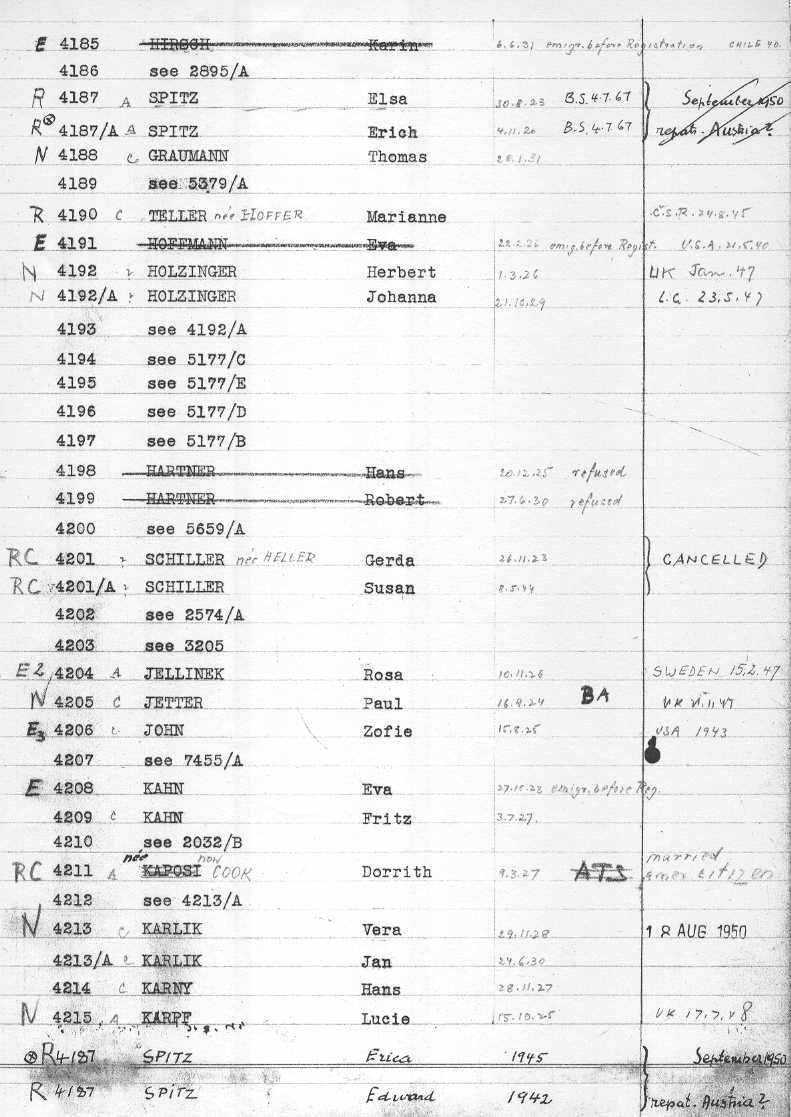 E 4185 HIRSCH Karin 6.6.31 emigr. before Registration CHILE 40.
4186 see 2895/A
R 4187 A SPITZ Elsa 30.8.23 B.S. 4.7.67 September 1950
R 4187/A A SPITZ Erich 4.11.20 B.S. 4.7.67 repat. Austria?
N 4188 C GRAUMANN Thomas 1.31
4189 see 5379/A
R 4190 C TELLER née HOFFER Marianne Č.S.R. 24.8.45
E 4191 HOFFMANN Eva 22.2.26 emig. before Regist. U.S.A. 21.5.40
N 4192 HOLZINGER Herbert 1.3.26 UK Jan. 47
N 4192/A HOLZINGER Johanna 21.10.29 23.5.47
4193 see 4192/A
4194 see 5177/C
4195 see 5177/E
4196 see 5177/D
4197 see 5177/B
4198 HARTNER Hans 20.12.25 refused
4199 HARTNER Robert 27.6.30 refused
4200 see 5659/A
RC 4201 SCHILLER née HELLER Gerda 26.11.23 CANCELLED
RC 4201/A SCHILLER Susan 8.5.44
4202 see 2574/A
4203 see 3205
E2 4204 A JELLINEK Rosa 10.11.26 SWEDEN 15.2.47
N 4205 C JETTER Paul 16.9.24 BA UK
E3 4206 C JOHN Zofie 15.8.25 USA 1943
4207 see 7455/A
E 4208 KAHN Eva emigr. before Reg.
4209 C KAHN Fritz 3.7.27.
4210 see 2032/B
née now
RC 4211 A KAPOSI COOK Dorrith 9.3.27 ATS married
citizen
4212 see 4213/A
N 4213 C KARLIK Vera 29.11.28 18 AUG 1950
4213/A C KARLIK Jan 24.6.30
4214 C KARNY Hans 28.11.27
N 4215 A KARPF Lucie 15.10.25 UK 17.7.48
⊗ R 4187 SPITZ Erica 1945 September 1950
R 4187 SPITZ Edward 1942 repat. Austria?